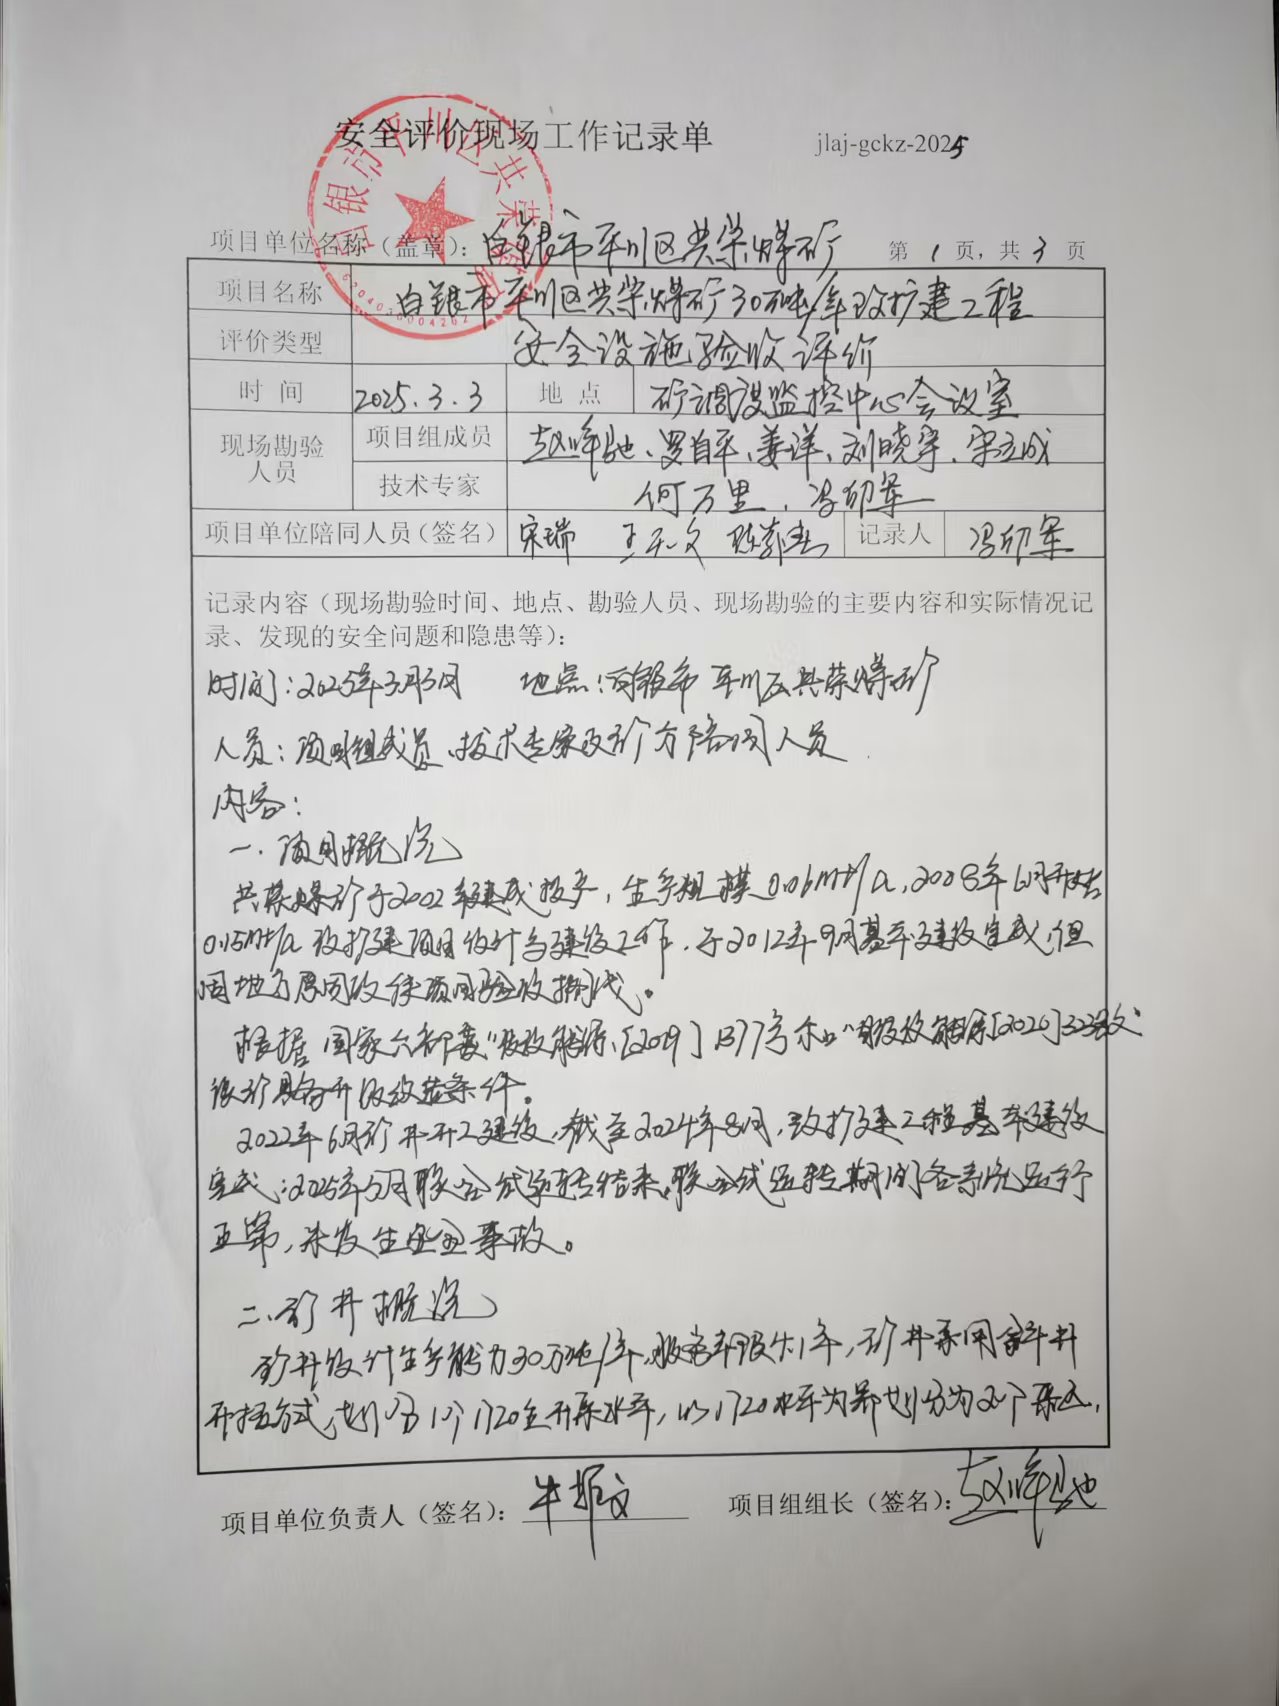 安全评价现场工作记录单 jlaj-gckz-2025
白银市平川区共荣煤矿
项目单位名称（盖章）：白银市平川区共荣煤矿 第 1 页，共 3 页
项目名称 白银市平川区共荣煤矿30万吨/年改扩建工程
评价类型 安全设施验收评价
时 间 2025.3.3 地 点 矿调度监控中心会议室
现场勘验人员 项目组成员 赵峰驰、罗自平、姜洋、刘晓宇、宋立成
技术专家 何万里、冯印军
项目单位陪同人员（签名） 宋瑞 王天文 记录人 冯印军
记录内容（现场勘验时间、地点、勘验人员、现场勘验的主要内容和实际情况记
录、发现的安全问题和隐患等）：
时间：2025年3月3日 地点：白银市平川区共荣煤矿
人员：项目组成员、技术专家及矿方陪同人员
内容：
一、项目概况
共荣煤矿于2002年建成投产，生产规模0.06Mt/a，2008年6月开始
0.15Mt/a改扩建项目设计与建设工作，于2012年9月基本建设完成，但
因地方原因致使项目验收搁浅。
根据国家六部委"发改能源[2019]1377号和"发改能源[2020]323号文
该矿具备升级改造条件。
2022年6月矿井开工建设，截至2024年8月，改扩建工程基本建设
完成；2025年2月联合试运转结束，联合试运转期间各系统运行
正常，未发生安全事故。
二、矿井概况
矿井设计生产能力30万吨/年，服务年限 年，矿井采用斜井
开拓方式，划分1个1720主开采水平，以1720水平为界划分为2个采区，
项目单位负责人（签名）：牛振文 项目组组长（签名）：赵峰驰